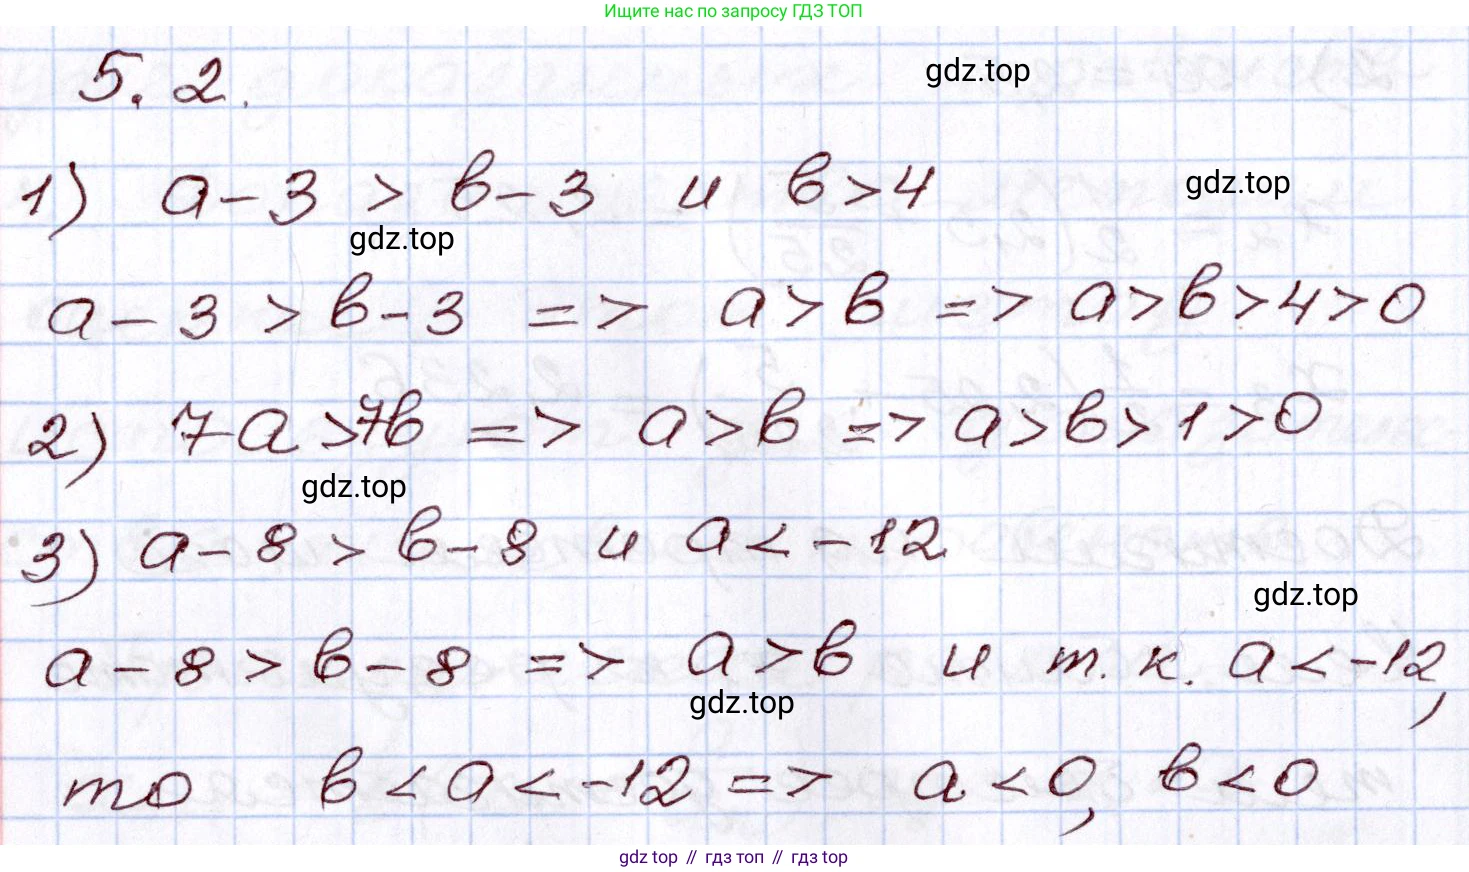 Ищите нас по запросу ГДЗ ТОП
5.2.
gdz.top
1) a-3 > b-3 и b>4
gdz.top
gdz.top
a-3 > b-3 => a>b => a>b>4>0
2) 7a>7b => a>b => a>b>1>0
gdz.top
3) a-8 > b-8 и a<-12
gdz.top
a-8 > b-8 => a>b и т.к. a<-12,
gdz.top
то b<a<-12 => a<0, b<0
gdz top // гдз топ // гдз top